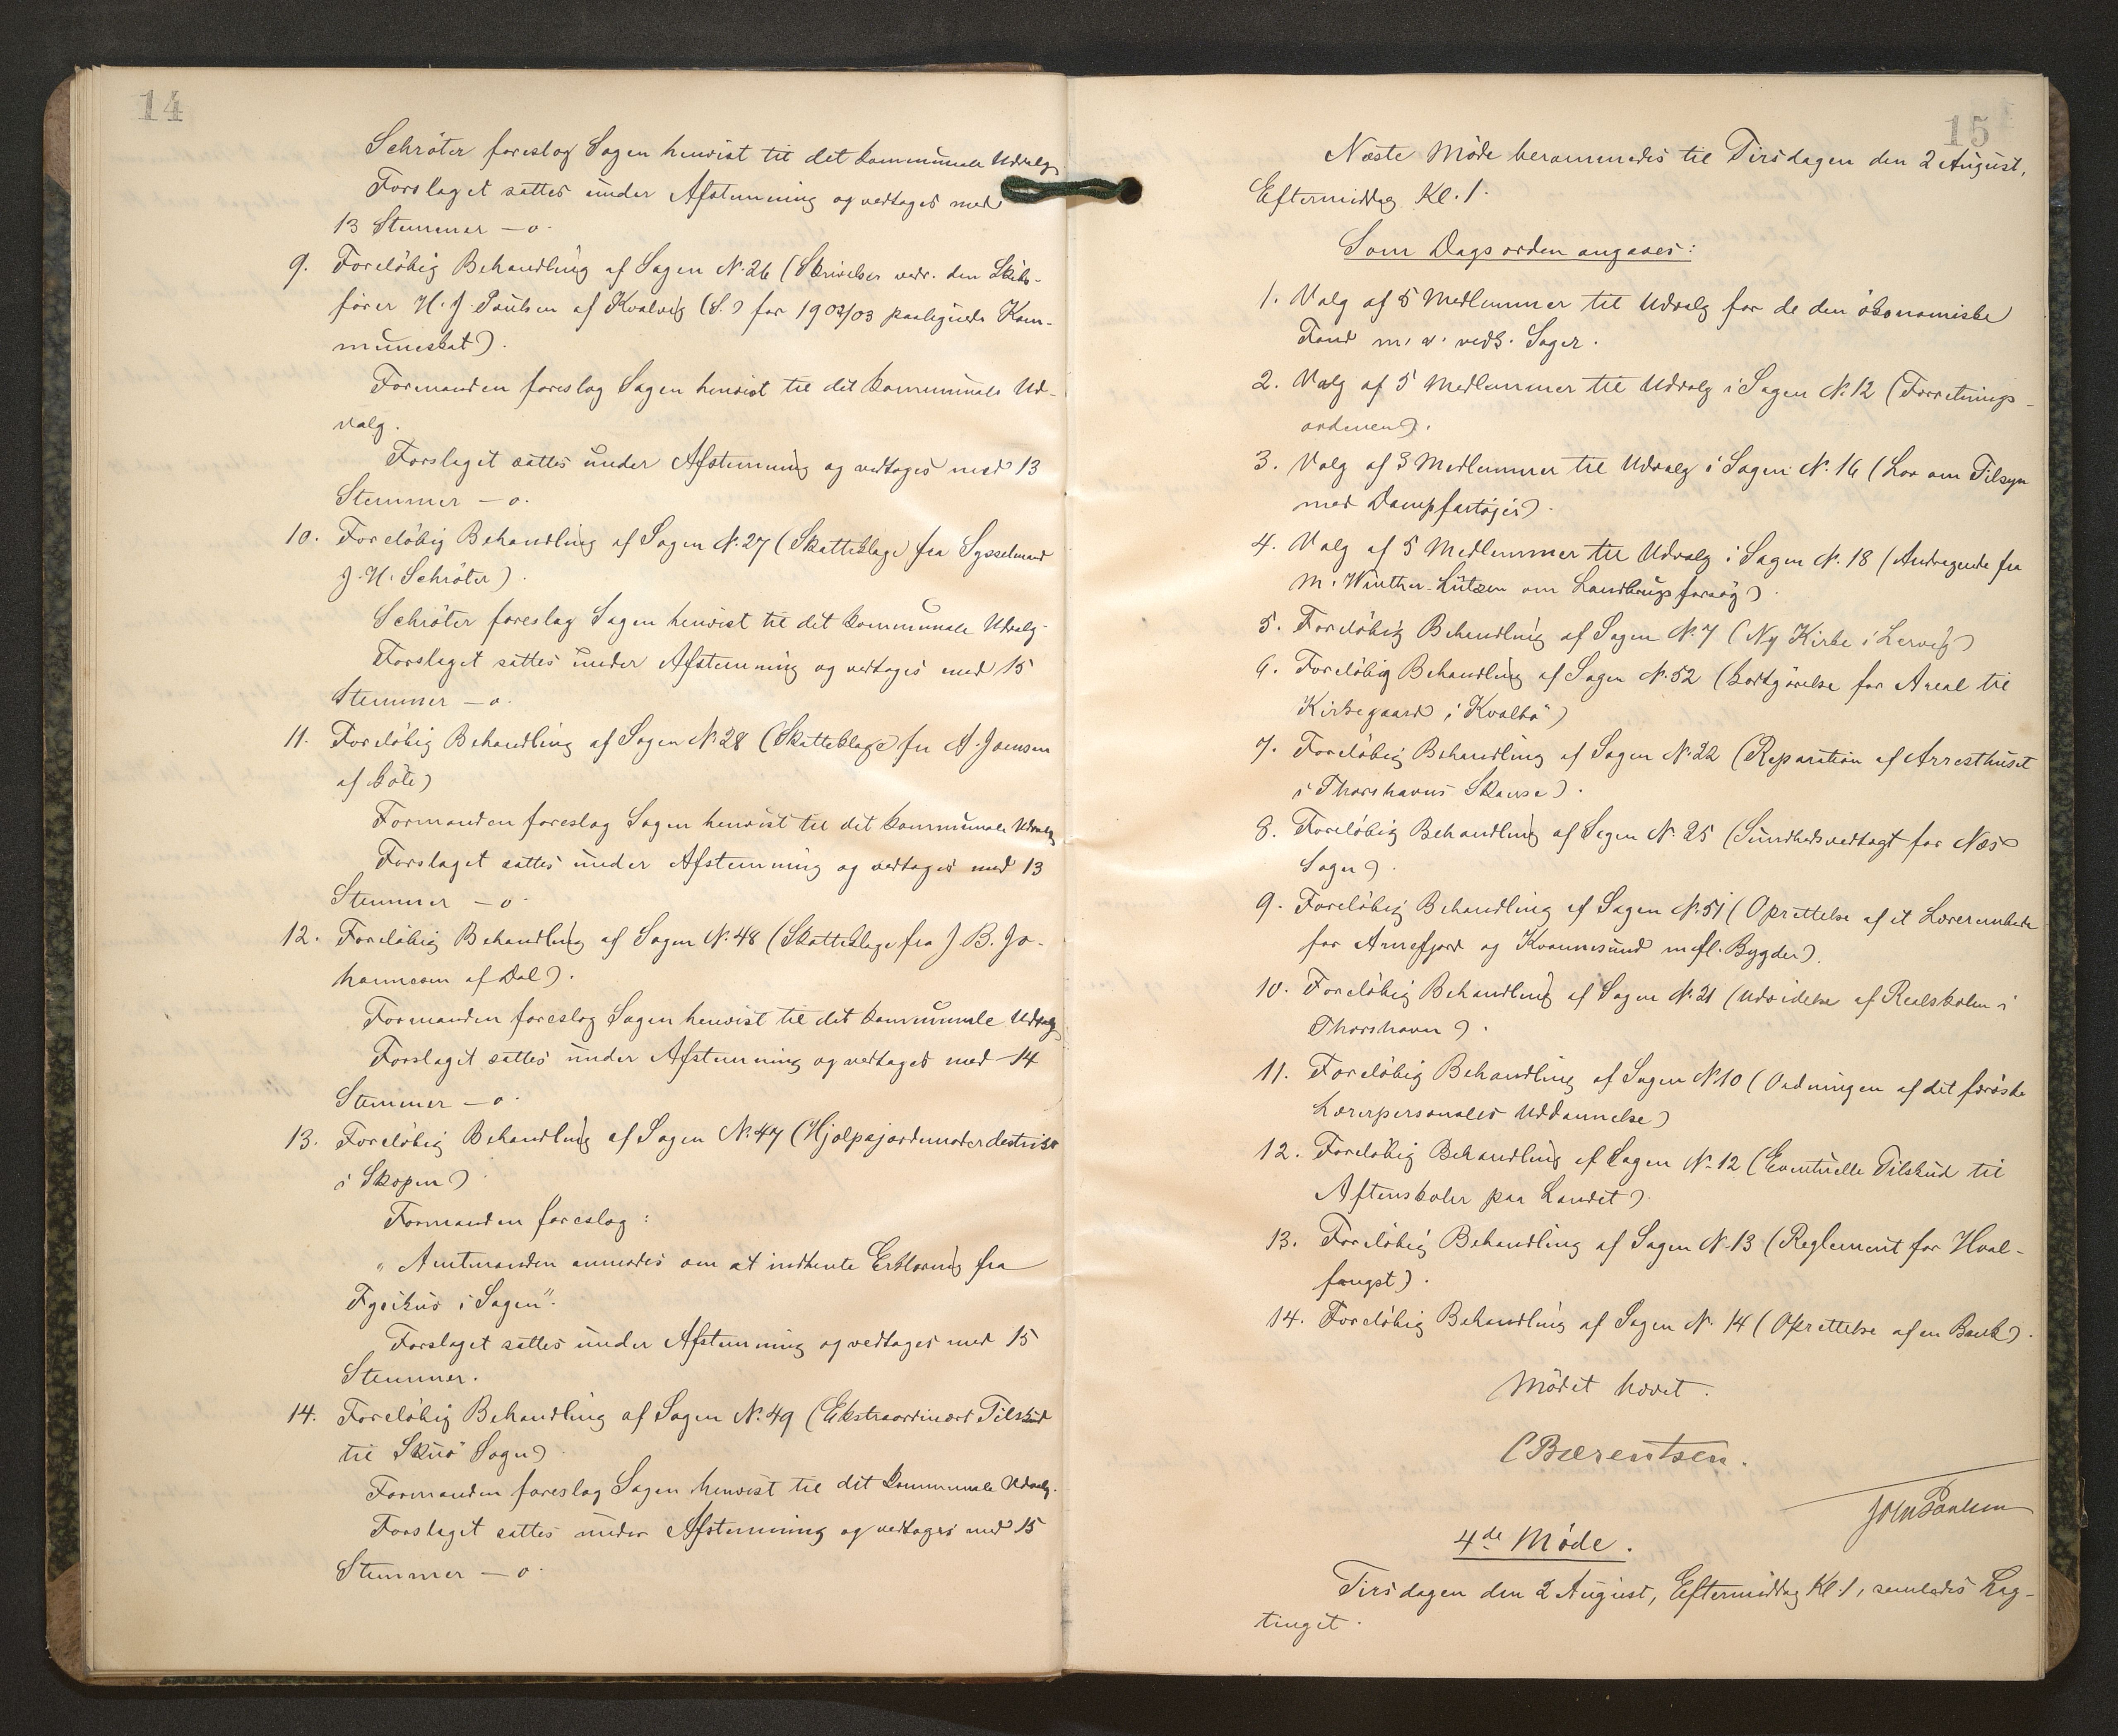 14
Schröter foreslog Sagen henvist til det kommunale Udvalg.
Forslaget sattes under Afstemning og vedtages med
13 Stemmer – o.
9. Foreløbig Behandling af Sagen N. 26 (Skrivelse vedr. den Skibs-
fører H. J. Poulsen af Kvalvig (S.) for 1902/03 paalignede Kom-
muneskat).
Formanden foreslog Sagen henvist til det kommunale Ud-
valg.
Forslaget sattes under Afstemning og vedtages med 13
Stemmer – o.
10. Foreløbig Behandling af Sagen N. 27 (Skatteklage fra Sysselmand
J. H. Schröter).
Schröter foreslog Sagen henvist til det kommunale Udvalg.
Forslaget sattes under Afstemning og vedtages med 15
Stemmer – o.
11. Foreløbig Behandling af Sagen N. 28 (Skatteklage fra A. Joensen
af Gøte)
Formanden foreslog Sagen henvist til det kommunale Udvalg
Forslaget sattes under Afstemning og vedtages med 13
Stemmer – o.
12. Foreløbig Behandling af Sagen N. 48 (Skatteklage fra J. B. Jo-
hannesen af Dal).
Formanden foreslog Sagen henvist til det kommunale Udvalg
Forslaget sattes under Afstemning og vedtages med 14
Stemmer – o.
13. Foreløbig Behandling af Sagen N. 47 (Hjælpejordemoderdistrikt
i Skopen)
Formanden foreslog:
"Amtmanden anmodes om at indhente Erklæring fra
Fysikus i Sagen".
Forslaget sattes under Afstemning og vedtages med 15
Stemmer.
14. Foreløbig Behandling af Sagen N. 49 (Ekstraordinært Tilskud
til Skuø Sogn)
Formanden foreslog Sagen henvist til det kommunale Udvalg.
Forslaget sattes under Afstemning og vedtages med 15
Stemmer – o.
15
Næste Møde berammedes til Tirsdagen den 2 August,
Eftermiddag Kl. 1.
Som Dagsorden angaves:
1. Valg af 5 Medlemmer til Udvalg for de den økonomiske
Fond m. v. vedk. Sager.
2. Valg af 5 Medlemmer til Udvalg i Sagen N. 12 (Forretnings-
ordenen).
3. Valg af 3 Medlemmer til Udvalg i Sagen N. 16 (Lov om Tilsyn
med Dampfartøjer).
4. Valg af 5 Medlemmer til Udvalg i Sagen N. 18 (Andragende fra
M. Winther-Lützen om Landbrugsforsøg).
5. Foreløbig Behandling af Sagen N. 7 (Ny Kirke i Lervig)
6. Foreløbig Behandling af Sagen N. 52 (Godtgørelse for Areal til
Kirkegaard i Kvalbø)
7. Foreløbig Behandling af Sagen N. 22 (Reparation af Arresthuset
i Thorshavns Skanse).
8. Foreløbig Behandling af Sagen N. 25 (Sundhedsvedtægt for Næs
Sogn).
9. Foreløbig Behandling af Sagen N. 51 (Oprettelse af et Lærerembede
for Arnefjord og Kvannesund m. fl. Bygder).
10. Foreløbig Behandling af Sagen N. 21 (Udvidelse af Realskolen i
Thorshavn).
11. Foreløbig Behandling af Sagen N. 10 (Ordningen af det færøske
Lærerpersonales Uddannelse)
12. Foreløbig Behandling af Sagen N. 12 (Eventuelle Tilskud til
Aftenskoler paa Landet).
13. Foreløbig Behandling af Sagen N. 13 (Reglement for Hval-
fangst).
14. Foreløbig Behandling af Sagen N. 14 (Oprettelse af en Bank).
Mødet hævet.
C Bærentsen.
Poulsen
4de Møde.
Tirsdagen den 2 August, Eftermiddag Kl. 1, samledes Lag-
tinget.